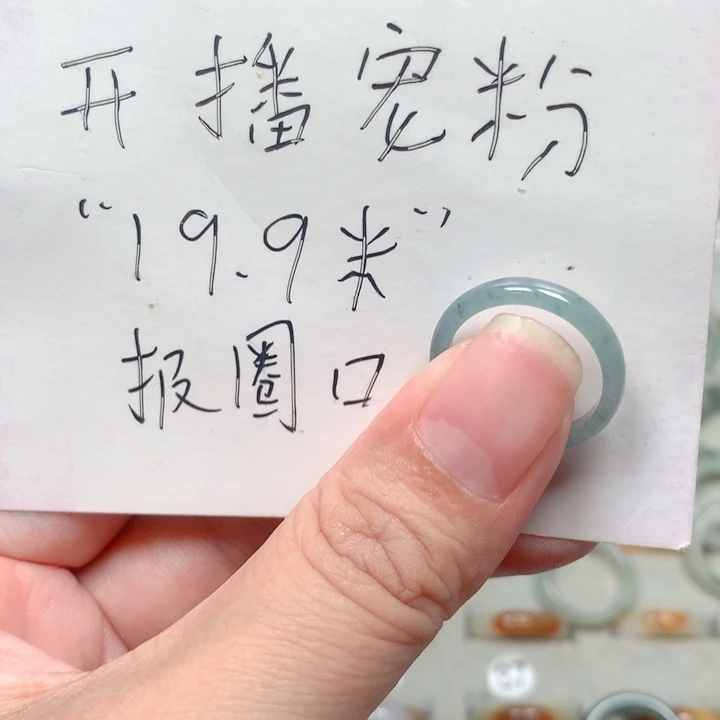 开播宠粉
"19.9米"
报圈口